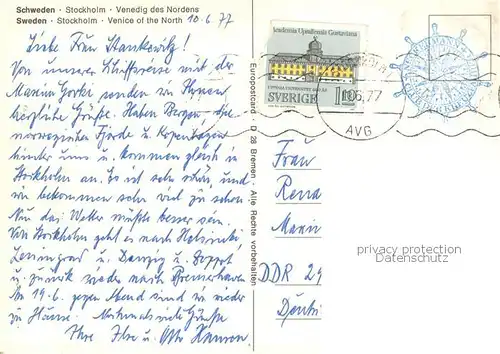 Schweden · Stockholm · Venedig des Nordens
Sweden · Stockholm · Venice of the North 10.6.77
Liebe Frau Stankewitz!
Von unserer Schiffsreise mit der
Maxim Gorki senden wir Ihnen
herzliche Grüße. Haben Bergen, die
norwegischen Fjorde u. Kopenhagen
hinter uns u. kommen gleich in
Stockholm an. Es ist sehr schön, und
wir bekommen sehr viel zu sehen.
Nur das Wetter müßte besser sein.
Von Stockholm geht es nach Helsinki,
Leningrad u. Danzig u. Zoppot
u. zurück wieder nach Bremerhaven
Am 19.6. gegen Abend sind wir wieder
zu Hause. Nochmals viele Grüße
Ihre Ilse u. Otto
Europostcard · D 28 Bremen · Alle Rechte vorbehalten
Academia Upsaliensis Gustaviana
UPPSALA UNIVERSITET 500 ÅR
SVERIGE 110
6.77
AVG
Frau
Rena
DDR 29
privacy protection
datenschutz